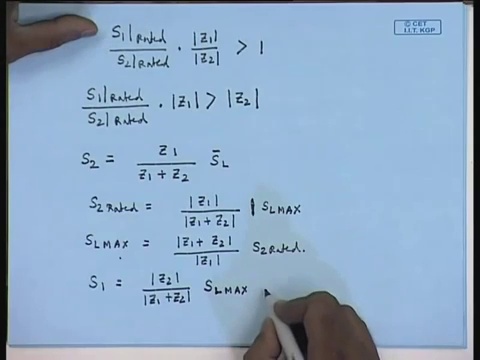 © CET
I.I.T. KGP
S1|Rated / S2|Rated . |Z1| / |Z2| > 1
S1|Rated / S2|Rated . |Z1| > |Z2|
S2 = Z1 / (Z1 + Z2) S̄L
S2 Rated = |Z1| / |Z1 + Z2| | SLMAX
SLMAX = |Z1 + Z2| / |Z1| S2 Rated.
S1 = |Z2| / |Z1 + Z2| SLMAX